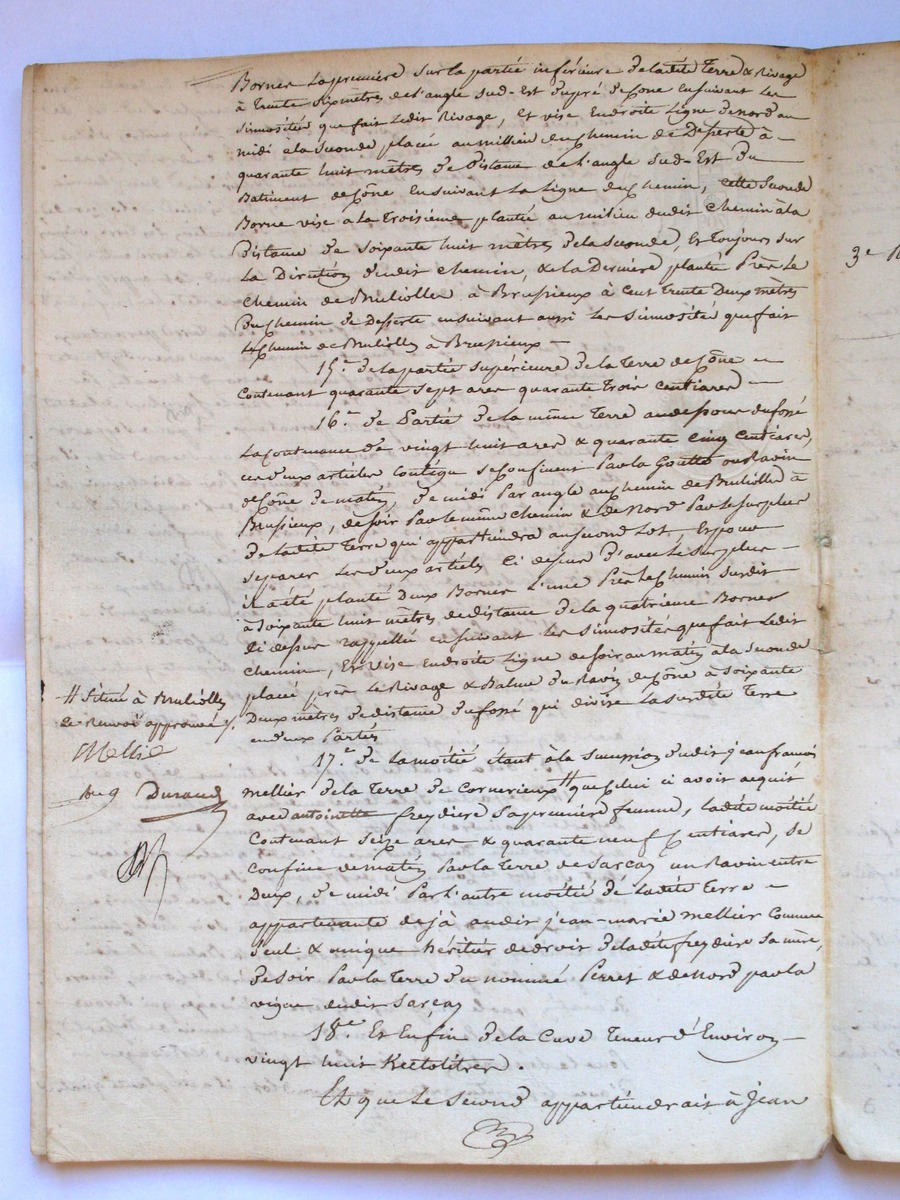 Bornes La première sur la partie inférieure de ladite Terre & Rivage
à Trente six mètres de l'angle Sud-Est du pré de Cône en suivant Les
sinuosités que fait Ledit Rivage, Et vise en droite Ligne de nord au
midi a la seconde placée au millieu du Chemin de Desserte à
quarante huit mètres de Distance de l'angle Sud-Est du
Batiment de Cône en suivant La Ligne du Chemin, cette seconde
Borne vise à la Troisième plantée au milieu dudit Chemin à la
Distance de soixante huit mètres de la seconde, Et Toujours sur
La Direction dudit chemin, & la Dernière planté Près Le
Chemin de Bruliolles à Brussieux à Cent trente Deux mètres
Du Chemin de Desserte en suivant aussi les sinuosités que fait
le Chemin de Brulioles à Brussieux
15.° de la partie supérieure de la Terre de Cône
Contenant quarante sept ares quarante trois centiares
16.° de Partie de la même Terre au dessous du fossé
La Contenance de vingt huit ares & quarante cinq centiares,
ces deux articles contigu se Confinent Par la Goutte ou Ravin
de Cône de matin, de midi Par angle au Chemin de Brulioles à
Brussieux, de soir Par le même chemin & de Nord Par le surplus
de ladite Terre qui appartiendra au second Lot. Et pour
séparer Les deux articles Ci dessus d'avec Le surplus
il a été planté Deux Bornes L'une Près le Chemin susdit
à soixante huit mètres de distance de la quatrième Bornes
Ci dessus rappellée en suivant les sinuosités que fait Ledit
chemin, Et vise en droite Ligne de soir au matin à la seconde
placé près Le Rivage & Balme du Ravin de Cône à soixante
Deux mètres de distance du fossé qui divise La susdite Terre
en deux Parties
# Situé à Brulioles
Le Renvoi approuvé
Mellie
Durand
17.° de la moitié étant à la succession dudit jean françois
mellier de la Terre de Cornerieux # que Celui ci avoit acquit
avec antoinette freydière sa première femme, ladite moitié
Contenant seize ares & quarante neuf Centiares, se
Confine de matin Par la Terre de Sarcey un Ravin entre
Deux, de midi Par l'autre moitié de ladite Terre
appartenante déjà audit jean-marie mellier Comme
seul & unique héritier de droit de ladite freydière sa mère,
de soir Par la Terre du nommé Perret & de Nord par la
vigne dudit Sarcey
18.° Et Enfin de la Cuve Teneur d'Environ
vingt huit Hectolitres.
Et que Le Second appartiendrait à Jean